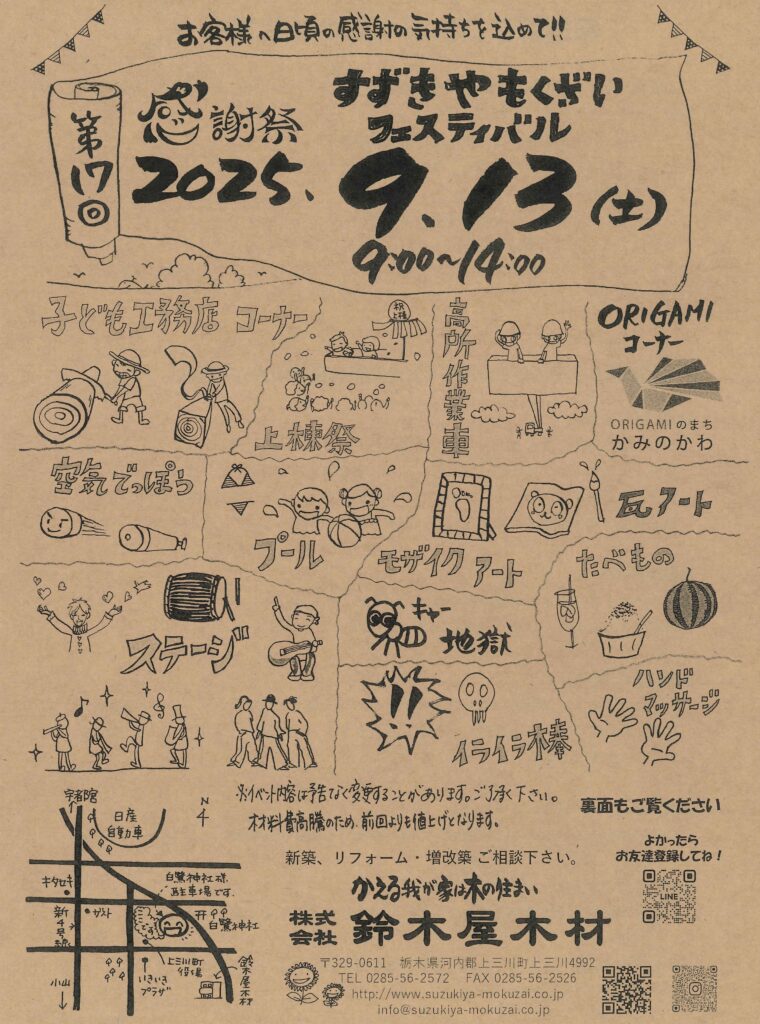 お客様へ日頃の感謝の気持ちを込めて!!
第17回
感謝祭
すずきやもくざい
フェスティバル
2025. 9.13(土)
9:00~14:00
子ども工務店 コーナー
祝上棟
上棟祭
高所作業車
ORIGAMI
コーナー
ORIGAMIのまち
かみのかわ
空気でっぽう
プール
モザイク アート
瓦アート
たべもの
ステージ
キャー
地獄
!!
イライラ棒
ハンド
マッサージ
※イベント内容は予告なく変更することがあります。ご了承下さい。
材料費高騰のため、前回よりも値上げとなります。
裏面もご覧ください
よかったら
お友達登録してね!
LINE
新築、リフォーム・増改築 ご相談下さい。
かえる我が家は木の住まい
株式会社 鈴木屋木材
〒329-0611 栃木県河内郡上三川町上三川4992
TEL 0285-56-2572 FAX 0285-56-2526
http://www.suzukiya-mokuzai.co.jp
info@suzukiya-mokuzai.co.jp
宇都宮
N
4
日産
自動車
白鷺神社様
駐車場です
キタセキ
ゲスト
白鷺神社
新4号線
上三川町
役場
いきいき
プラザ
小山
鈴木屋木材